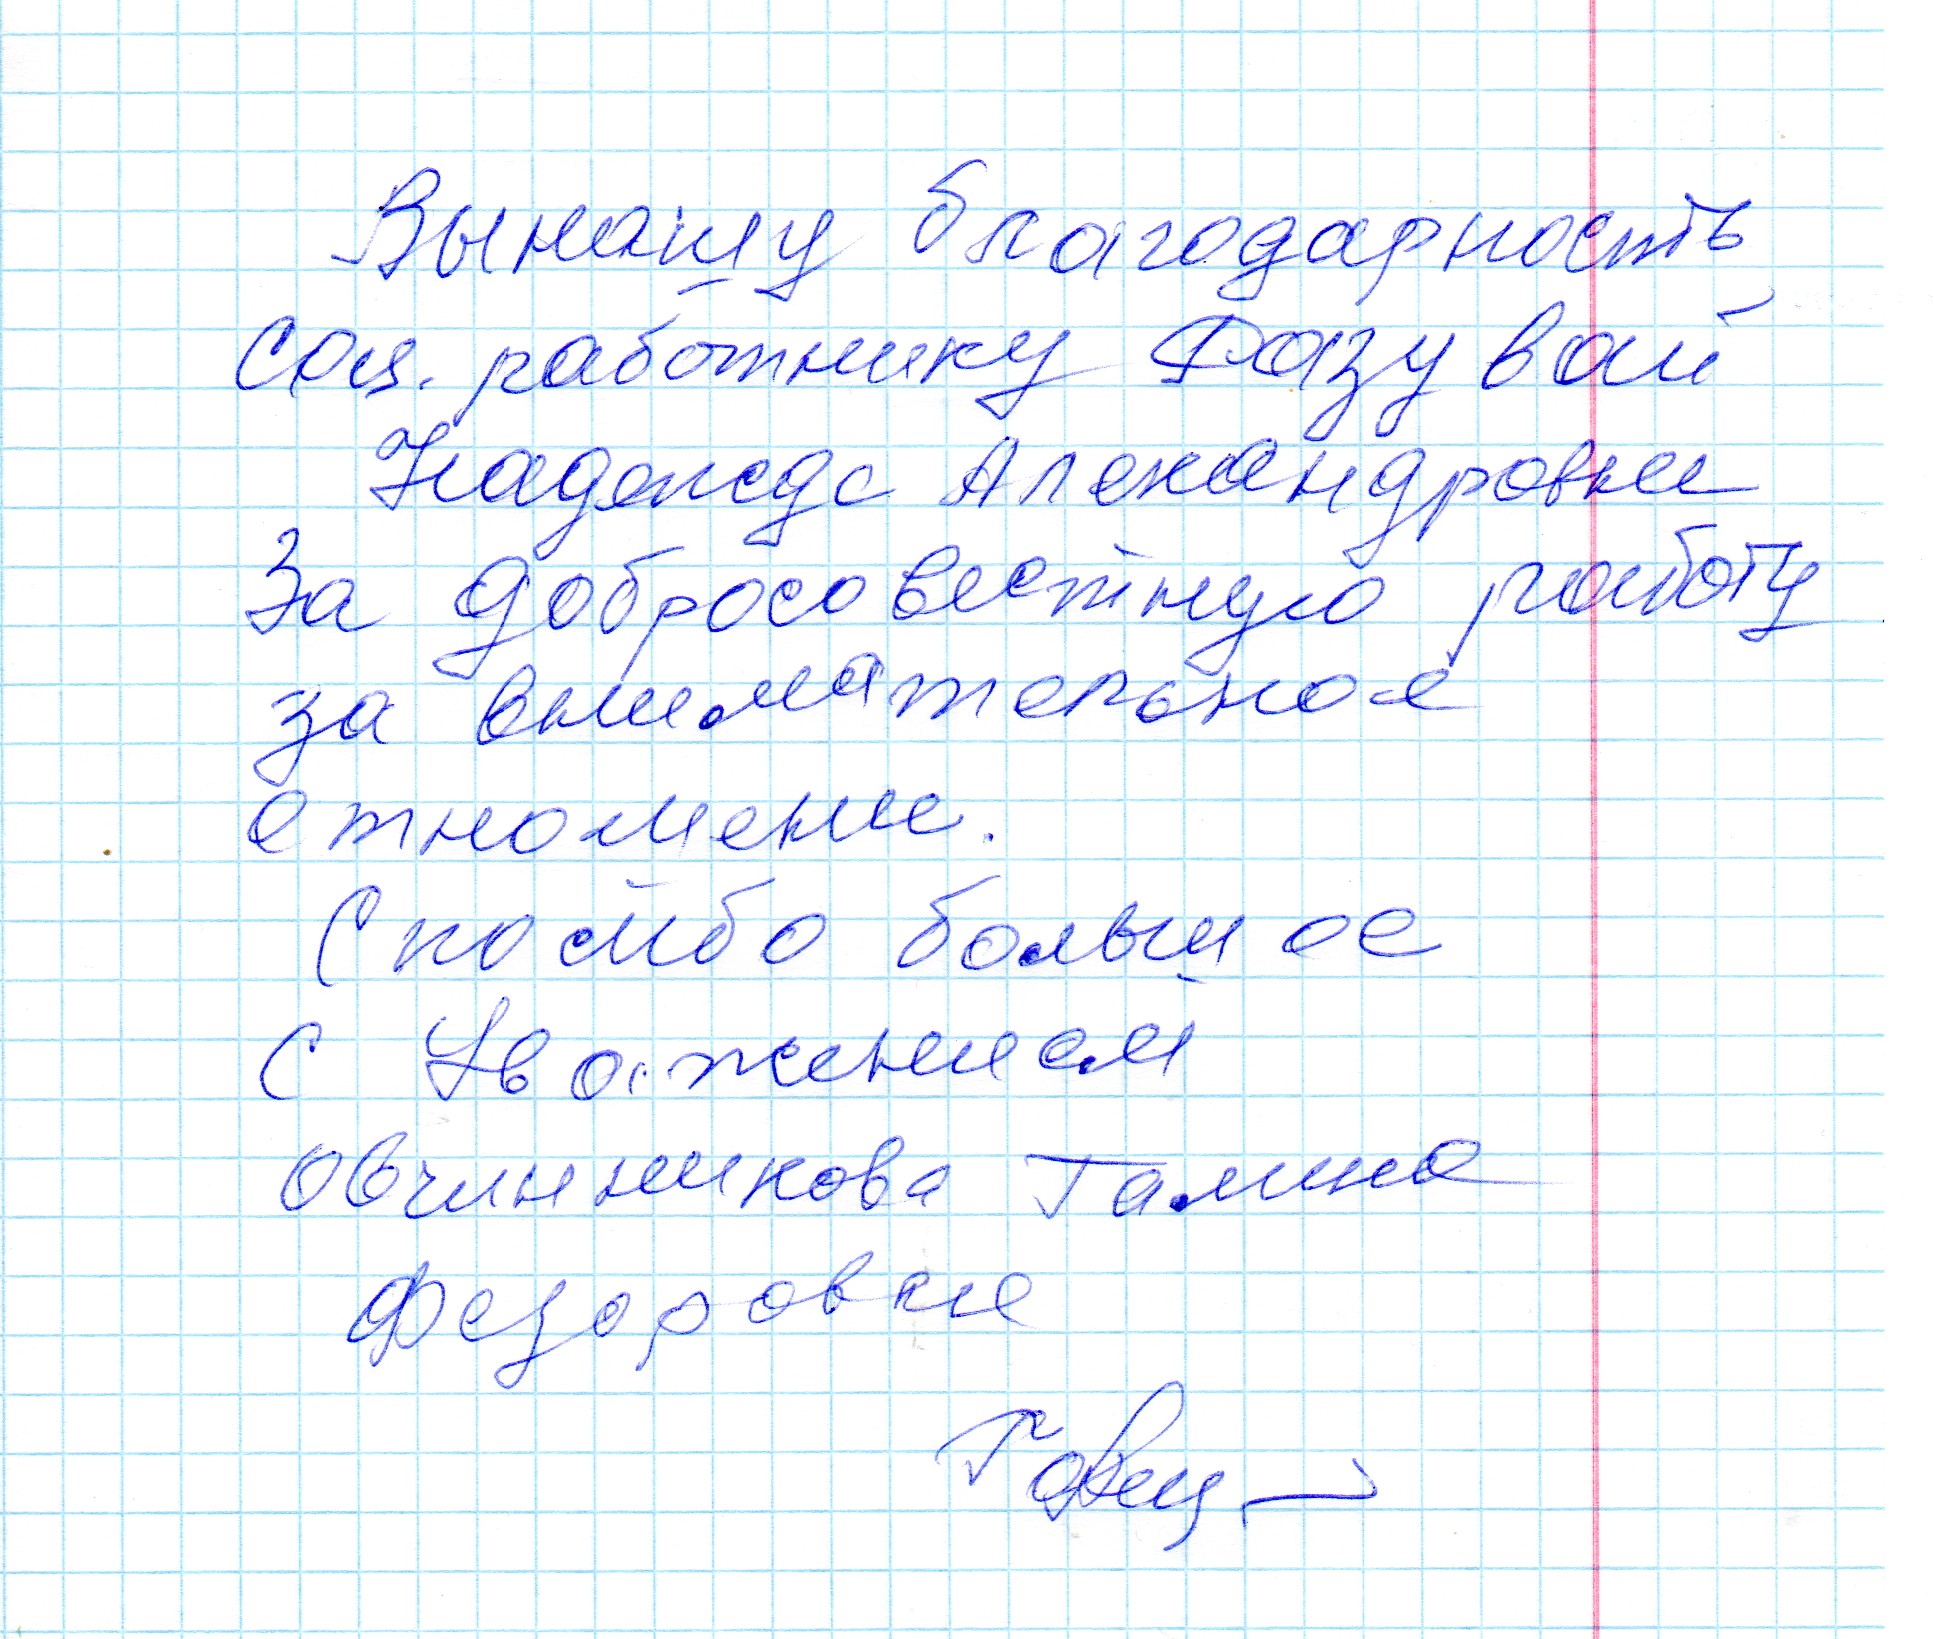 Вынашу благодарность
соц. работнику Фазувай
Надежде Александровне
За добросовестную работу
за внимательное
отношение.
Спасибо большое
с Уважением
Овчинникова Галина
Федоровне